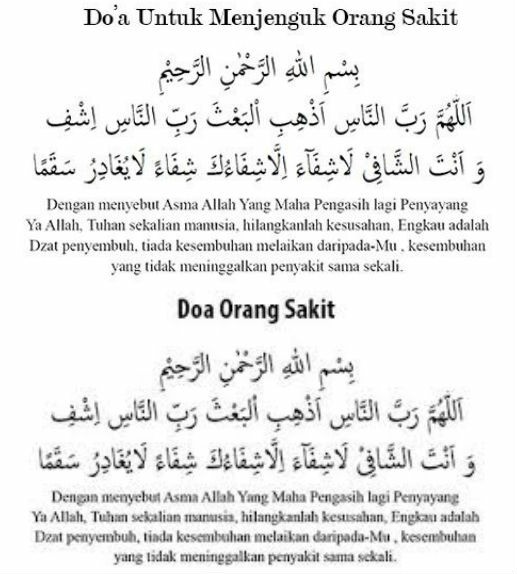 Do'a Untuk Menjenguk Orang Sakit
بِسْمِ اللهِ الرَّحْمٰنِ الرَّحِيْمِ
اَللّٰهُمَّ رَبَّ النَّاسِ اَذْهِبِ اَلْبَعْثَ رَبِّ النَّاسِ اِشْفِ
وَ اَنْتَ الشَّافِيْ لَاشِفَآءَ اِلَّاشِفَاءُكَ شِفَاءً لَايُغَادِرُ سَقَمًا
Dengan menyebut Asma Allah Yang Maha Pengasih lagi Penyayang
Ya Allah, Tuhan sekalian manusia, hilangkanlah kesusahan, Engkau adalah
Dzat penyembuh, tiada kesembuhan melaikan daripada-Mu , kesembuhan
yang tidak meninggalkan penyakit sama sekali.
Doa Orang Sakit
بِسْمِ اللهِ الرَّحْمٰنِ الرَّحِيْمِ
اَللّٰهُمَّ رَبَّ النَّاسِ اَذْهِبِ اَلْبَعْثَ رَبِّ النَّاسِ اِشْفِ
وَ اَنْتَ الشَّافِيْ لَاشِفَآءَ اِلَّاشِفَاءُكَ شِفَاءً لَايُغَادِرُ سَقَمًا
Dengan menyebut Asma Allah Yang Maha Pengasih lagi Penyayang
Ya Allah, Tuhan sekalian manusia, hilangkanlah kesusahan, Engkau adalah
Dzat penyembuh, tiada kesembuhan melaikan daripada-Mu , kesembuhan
yang tidak meninggalkan penyakit sama sekali.